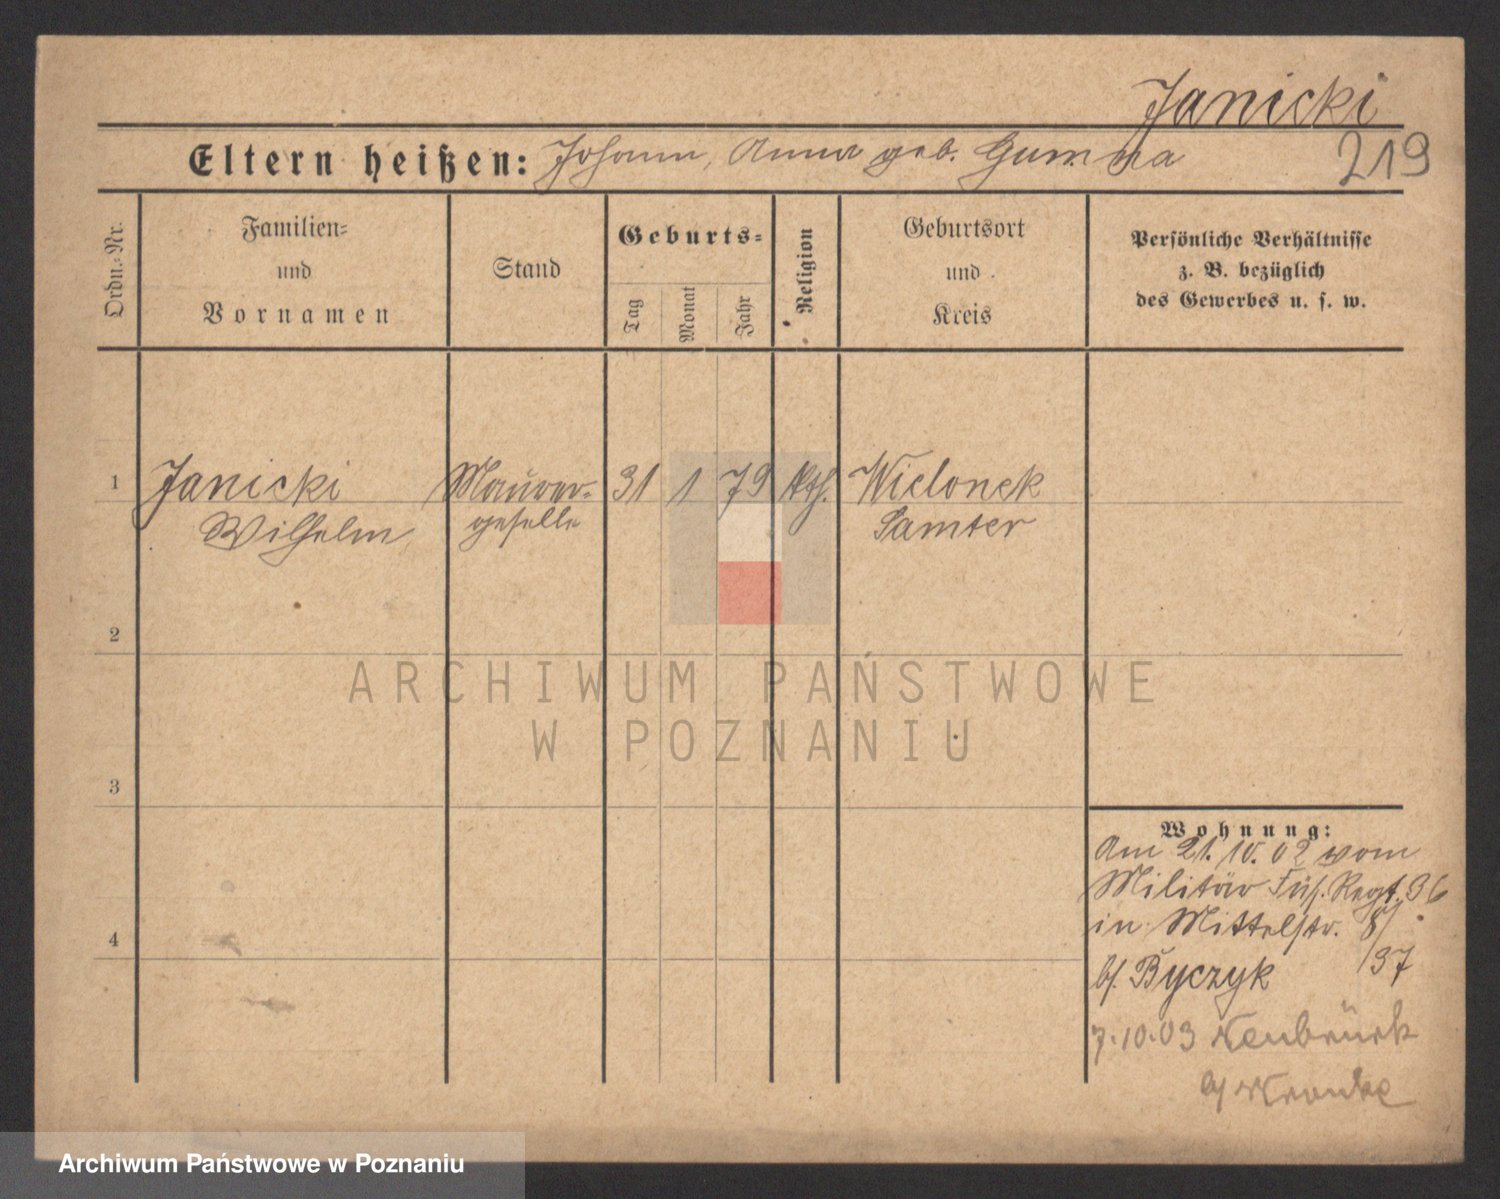 Janicki
219
Eltern heißen: Johann, Anna geb. Gumma
Ordn.-Nr.
Familien-
und
Vornamen
Stand
Geburts-
Tag
Monat
Jahr
Religion
Geburtsort
und
Kreis
Persönliche Verhältnisse
z. B. bezüglich
des Gewerbes u. s. w.
1 Janicki Maurer- 31 1 79 kth. Wielonek
Wilhelm geselle Samter
2
3
4
Wohnung:
Am 21.10.02 vom
Militär Füs. Regt. 36
in Mittelstr. 8/
b/. Byczyk /37
7.10.03 Neubrück
b/ Wronke
ARCHIWUM PAŃSTWOWE
W POZNANIU
Archiwum Państwowe w Poznaniu